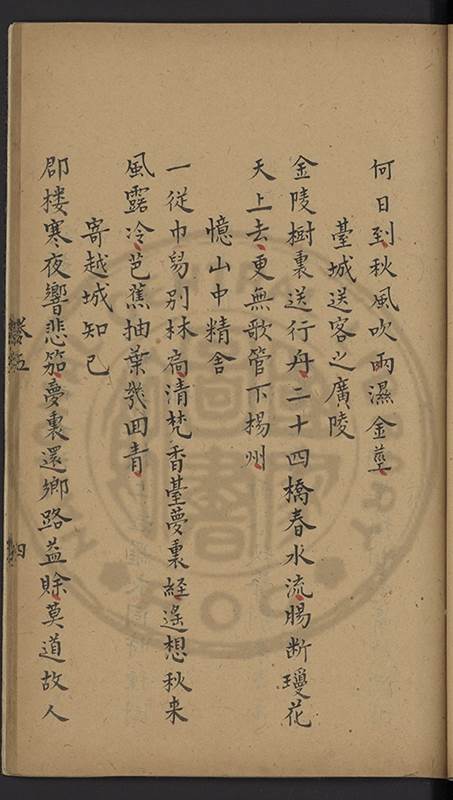 何日到秋風吹雨濕金莖
臺城送客之廣陵
金陵樹裏送行舟二十四橋春水流腸斷瓊花
天上去更無歌管下揚州
憶山中精舍
一從巾舄別林扃清梵香臺夢裏経遥想秋来
風露冷芭蕉抽葉幾回青
寄越城知己
郡楼寒夜響悲笳夢裏還鄉路益賖莫道故人
卷五
四